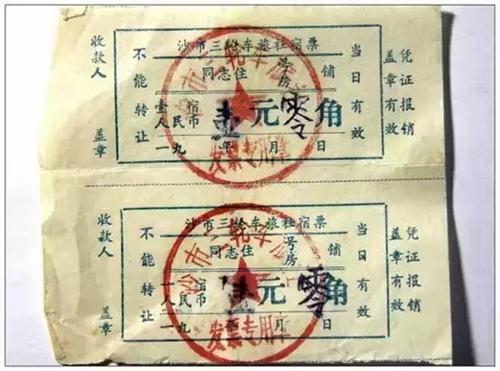 沙市三轮车旅社宿票
同志住 号房 铺
壹人民 宿币 壹元零角
一九 年 月 日
收款人 盖章
不能转让
当日有效
盖章有效
凭证报销
发票专用章
沙市三轮车旅社宿票
同志住 号房 铺
一人民 宿币 壹元零角
一九 年 月 日
收款人 盖章
不能转让
当日有效
盖章有效
凭证报销
发票专用章